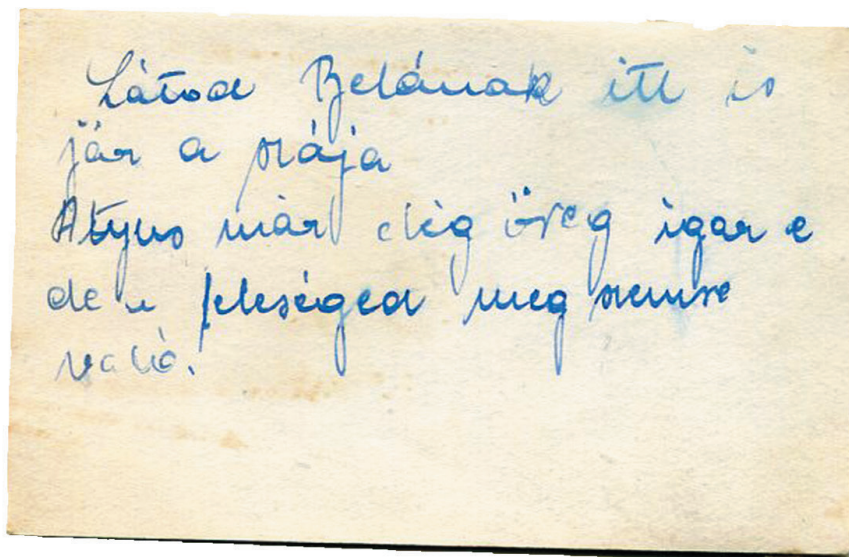 Látod Belának itt is
jár a szája
Atyus már elég öreg igaz e
de a feleséged meg semmre
való.